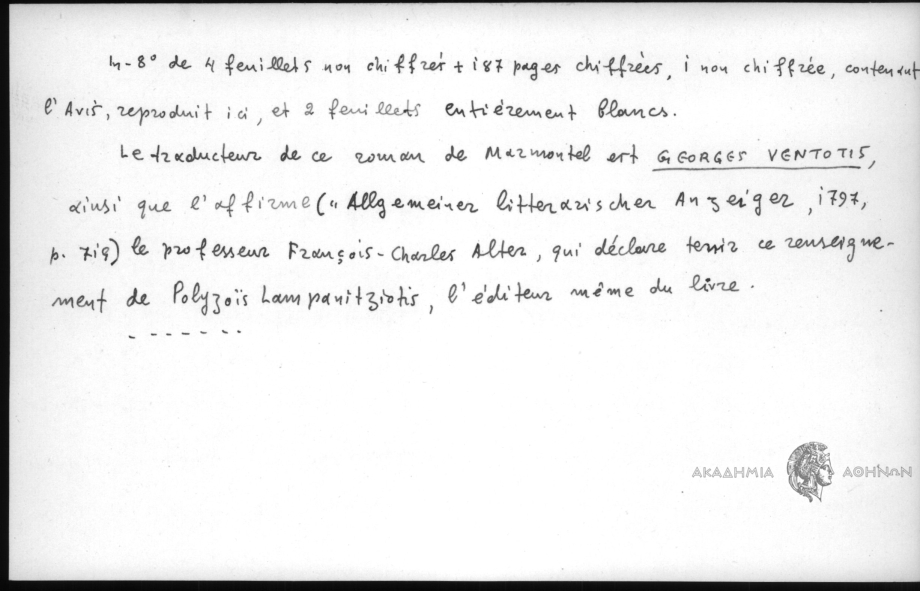 In-8° de 4 feuillets non chiffrés + 187 pages chiffrées, 1 non chiffrée, contenant
l'Avis, reproduit ici, et 2 feuillets entièrement blancs.
Le traducteur de ce roman de Marmontel est GEORGES VENTOTIS,
ainsi que l'affirme ("Allgemeiner litterarischer Anzeiger, 1797,
p. 719) le professeur François-Charles Alter, qui déclare tenir ce renseigne-
ment de Polyzoïs Lampanitziotis, l'éditeur même du livre.
-------
ΑΚΑΔΗΜΙΑ ΑΘΗΝΩΝ